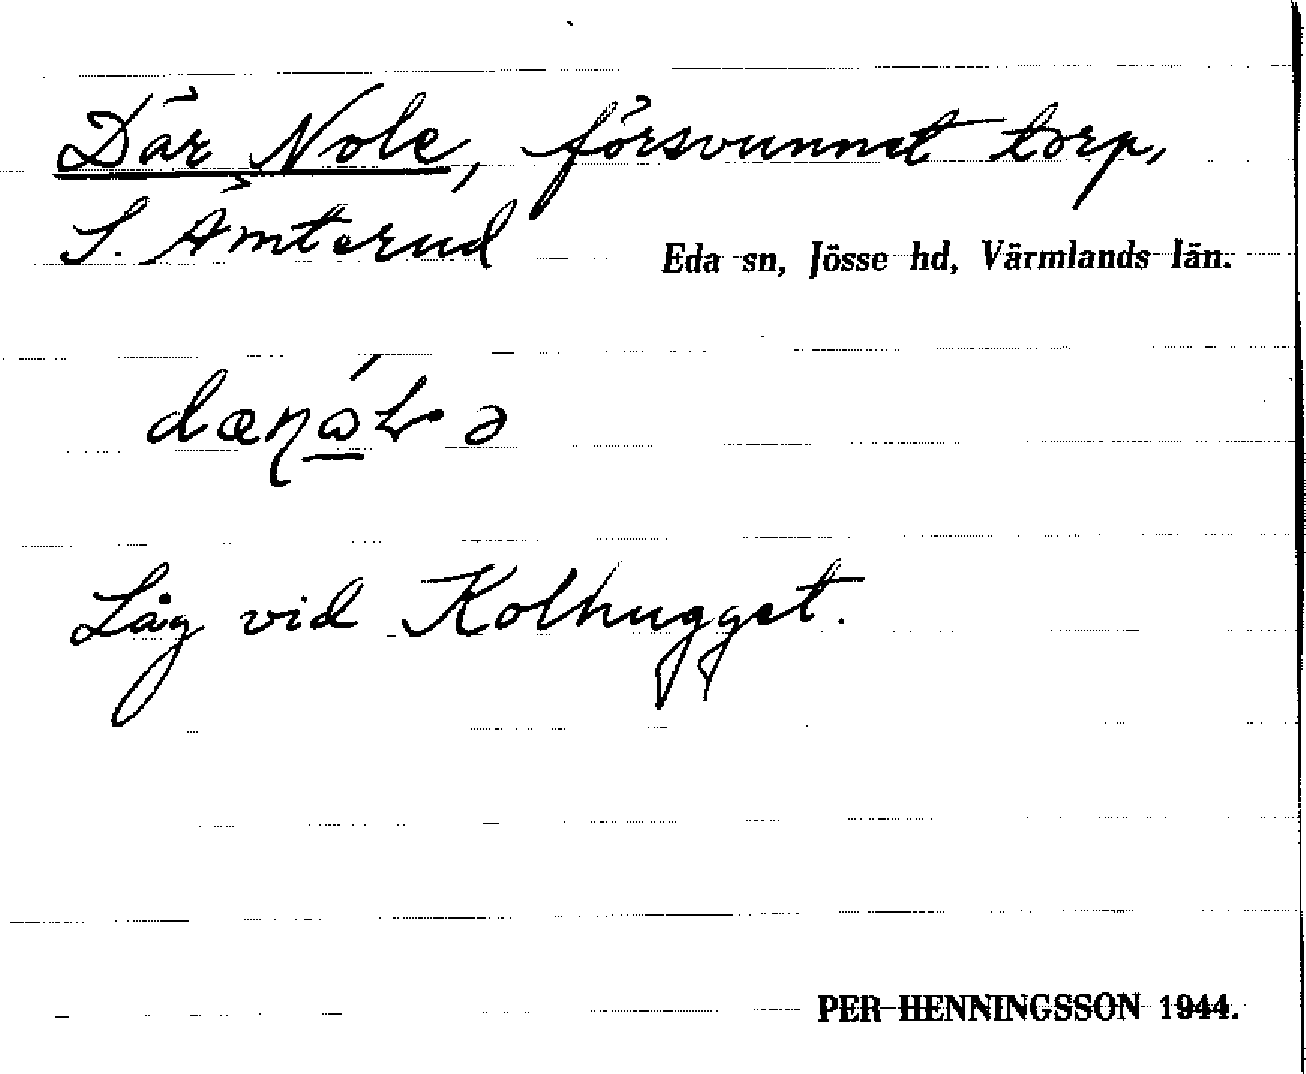 Där Nole, försvunnet torp,
S. Ämterud
Eda sn, Jösse hd, Värmlands län.
Låg vid Kolhugget.
PER HENNINGSSON 1944.